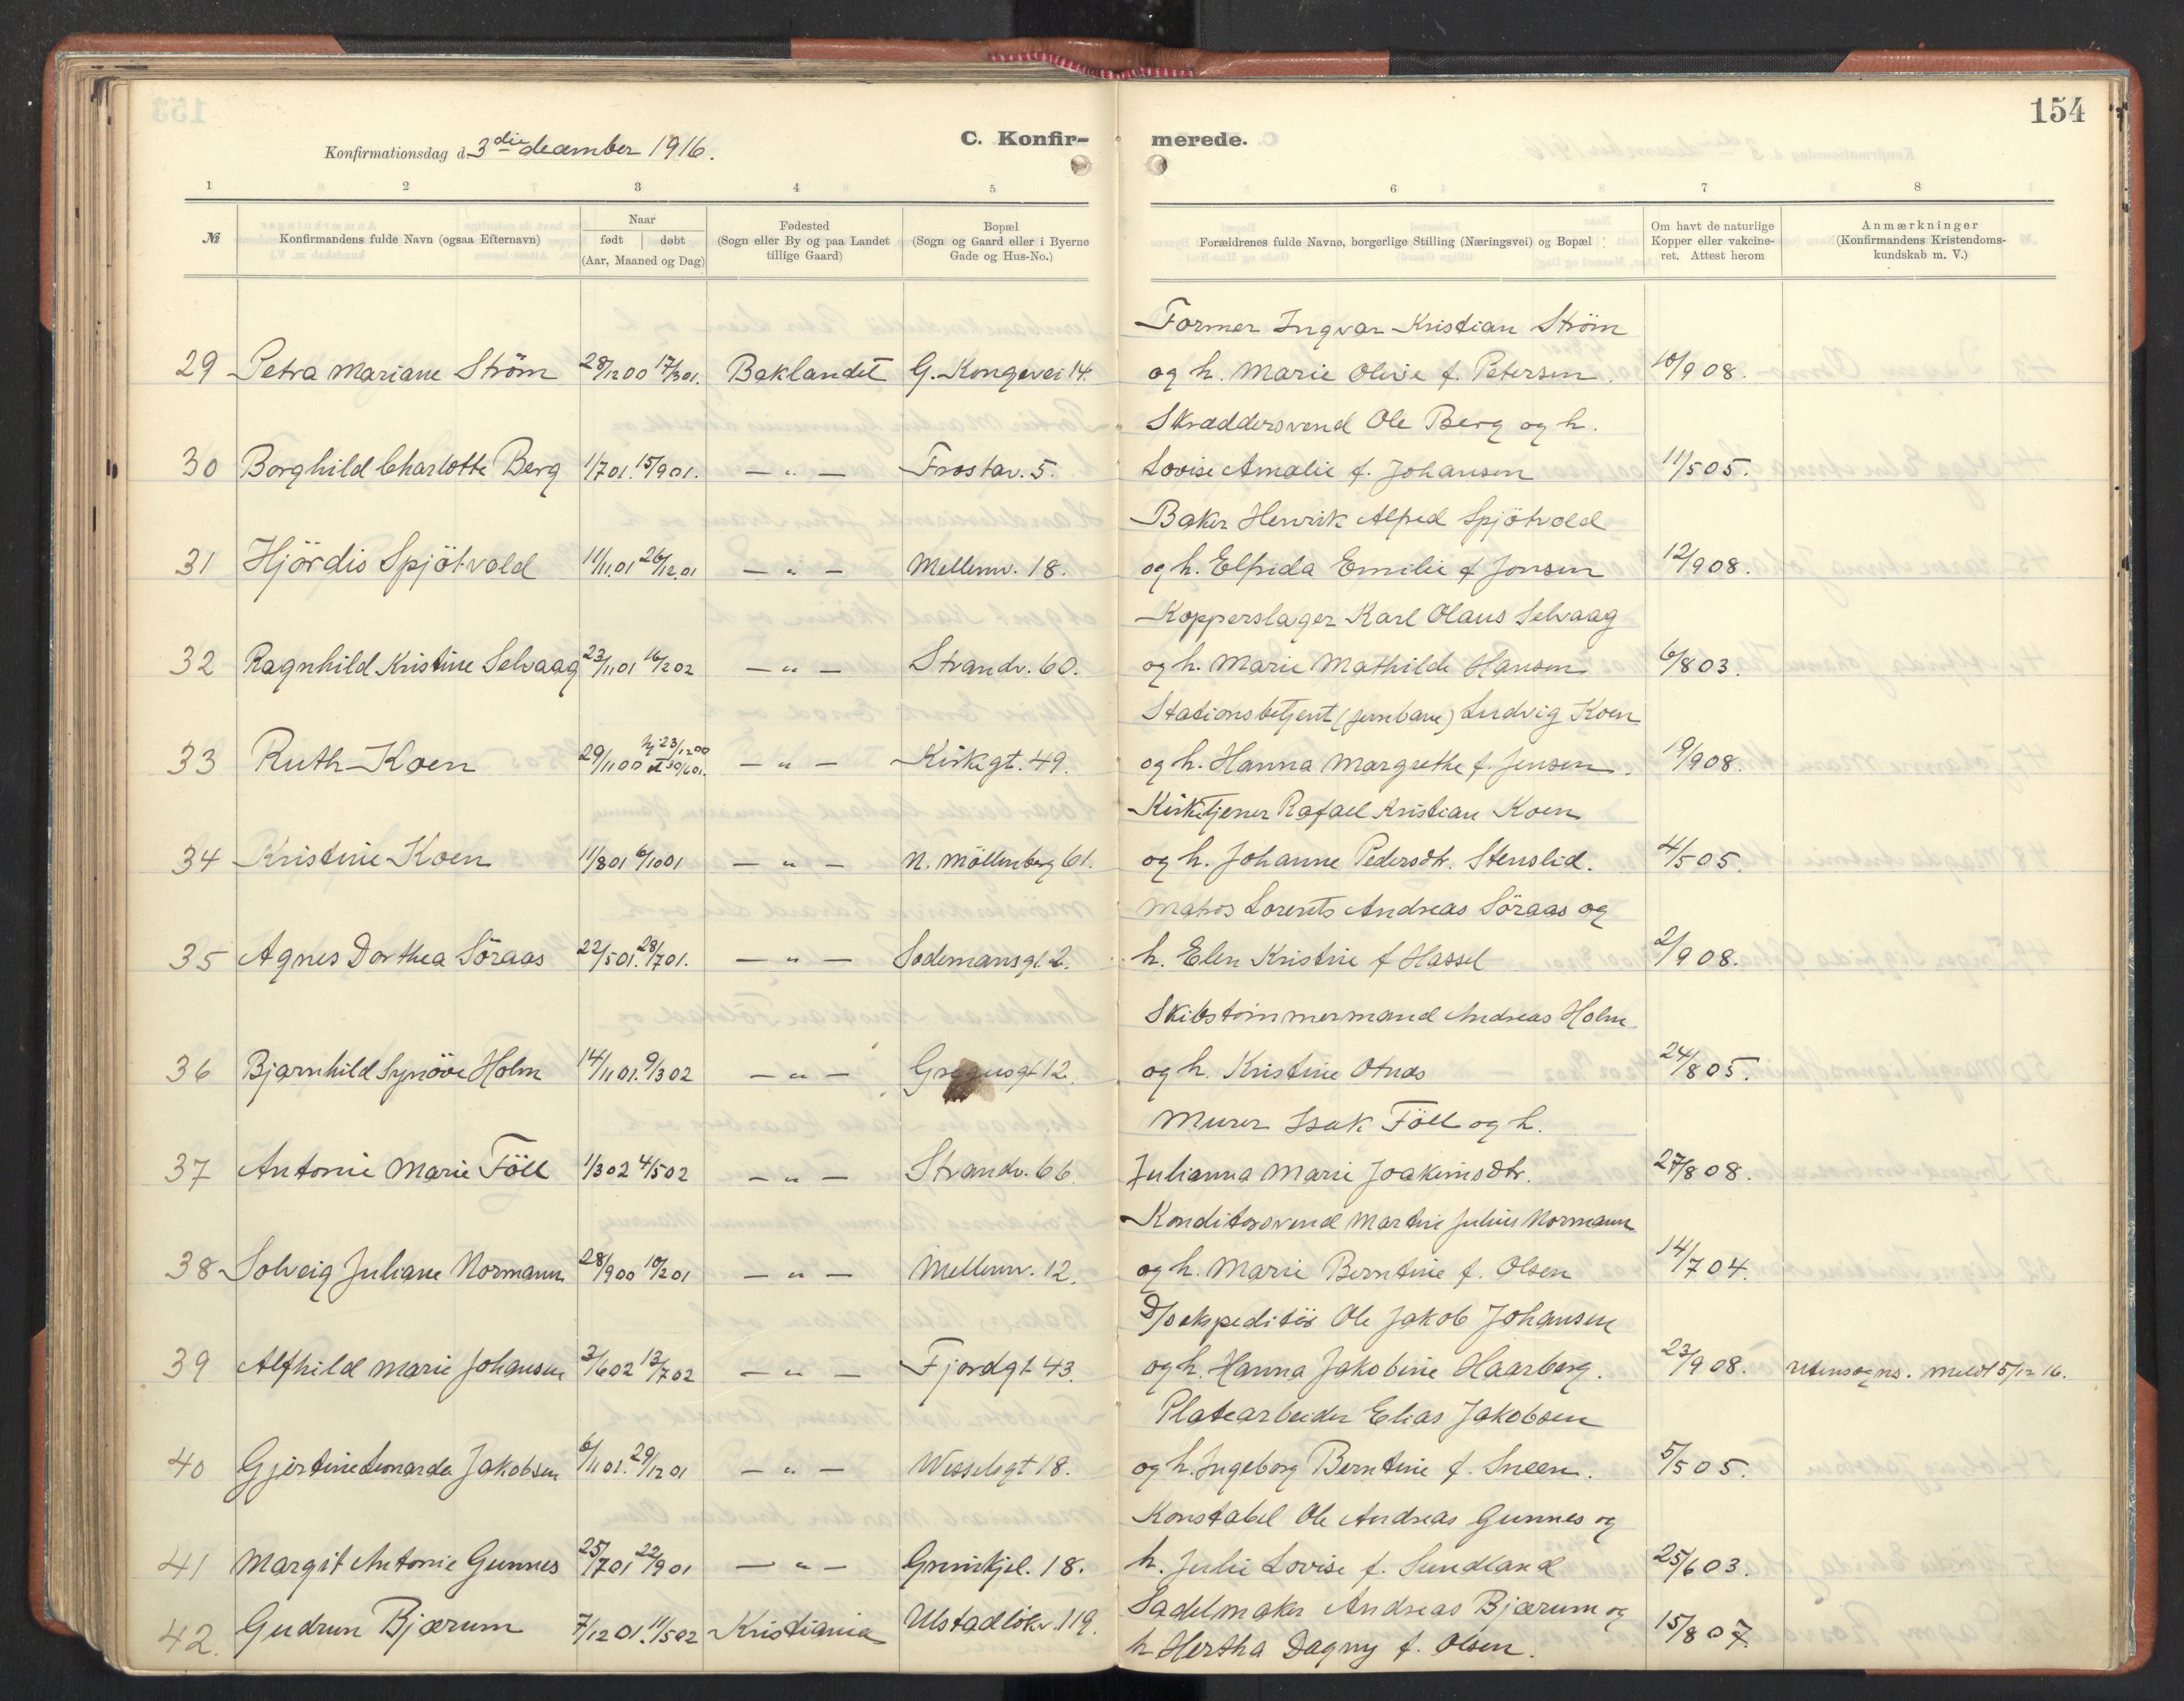 154
C. Konfir-merede.
Konfirmationsdag d. 3die december 1916.
1 2 3 4 5 6 7 8
№
Konfirmandens fulde Navn (ogsaa Efternavn)
Naar
født døbt
(Aar, Maaned og Dag)
Fødested
(Sogn eller By og paa Landet
tillige Gaard)
Bopæl
(Sogn og Gaard eller i Byerne
Gade og Hus-No.)
Forældrenes fulde Navne, borgerlige Stilling (Næringsvei) og Bopæl
Om havt de naturlige
Kopper eller vakcine-
ret. Attest herom
Anmærkninger
(Konfirmandens Kristendoms-
kundskab m. V.)
Former Ingvar Kristian Strøm
29 Petra Mariane Strøm 28/12 00 17/3 01. Baklandet G. Kongevei 14. og h. Marie Olise f. Petersen. 10/9 08.
Skræddersvend Ole Berg og h.
30 Borghild Charlotte Berg 1/7 01. 15/9 01. — " — Frostav. 5. Lovise Amalie f. Johansen 11/5 05.
Baker Henrik Alfred Spjötvold
31 Hjördis Spjötvold 11/11 01 26/12 01 — " — Mellemv. 18. og h. Elfrida Emilie f Jonsen 12/9 08.
Kopperslager Karl Olaus Selvaag
32 Ragnhild Kristine Selvaag 23/11 01 16/2 02 — " — Strandv. 60. og h. Marie Mathilde Hansen 6/8 03.
Stationsbetjent (jernbane) Ludvig Koen
33 Ruth Koen 29/11 00 hj. 23/12 00 st 30/6 01. — " — Kirkegt. 49. og h. Hanna Margrethe f. Jensen. 19/9 08.
Kirketjener Rafael Kristian Koen
34 Kristine Koen 11/8 01 6/10 01 — " — N. Möllenberg 61. og h. Johanne Pedersdtr. Stenslid. 4/5 05.
Matros Lorents Andreas Söraas og
35 Agnes Dorthea Söraas 22/5 01. 28/7 01. — " — Sodemansgt. 2. h. Elen Kristine f Hassel 2/9 08.
Skibstømmermand Andreas Holm
36 Bjarnhild Synöve Holm 14/11 01. 9/3 02 — " — Gregusgt 12. og h. Kristine Otnes 24/8 05.
Murer Isak Föll og h.
37 Antonie Marie Föll 1/3 02 4/5 02 — " — Strandv. 66. Julianna Marie Joakimsdtr. 27/8 08.
Konditorsvend Martin Julius Normann
38 Solveig Juliane Normann 28/9 00 10/2 01 — " — Mellemv. 12. og h. Marie Berntine f. Olsen 14/7 04.
D/sekspeditör Ole Jakob Johansen
39 Alfhild Marie Johansen 3/6 02 13/7 02 — " — Fjordgt 43. og h. Hanna Jakobine Haarberg. 23/9 08. Utensogns. meldt 5/12 16.
Platearbeider Elias Jakobsen
40 Gjertine Leonarda Jakobsen 6/11 01. 29/12 01 — " — Wesselsgt 18. og h. Ingeborg Berntine f. Sneen. 5/5 05.
Konstabel Ole Andreas Gunnes og
41 Margit Antonie Gunnes 25/7 01 22/9 01 — " — Grinikjel. 18. h. Julie Lovise f. Sundland 25/6 03.
Sadelmaker Andreas Bjærum og
42. Gudrun Bjærum 7/12 01. 11/5 02 Kristiania Ulstadløkv. 119. h Hertha Dagny f. Olsen. 15/8 07.